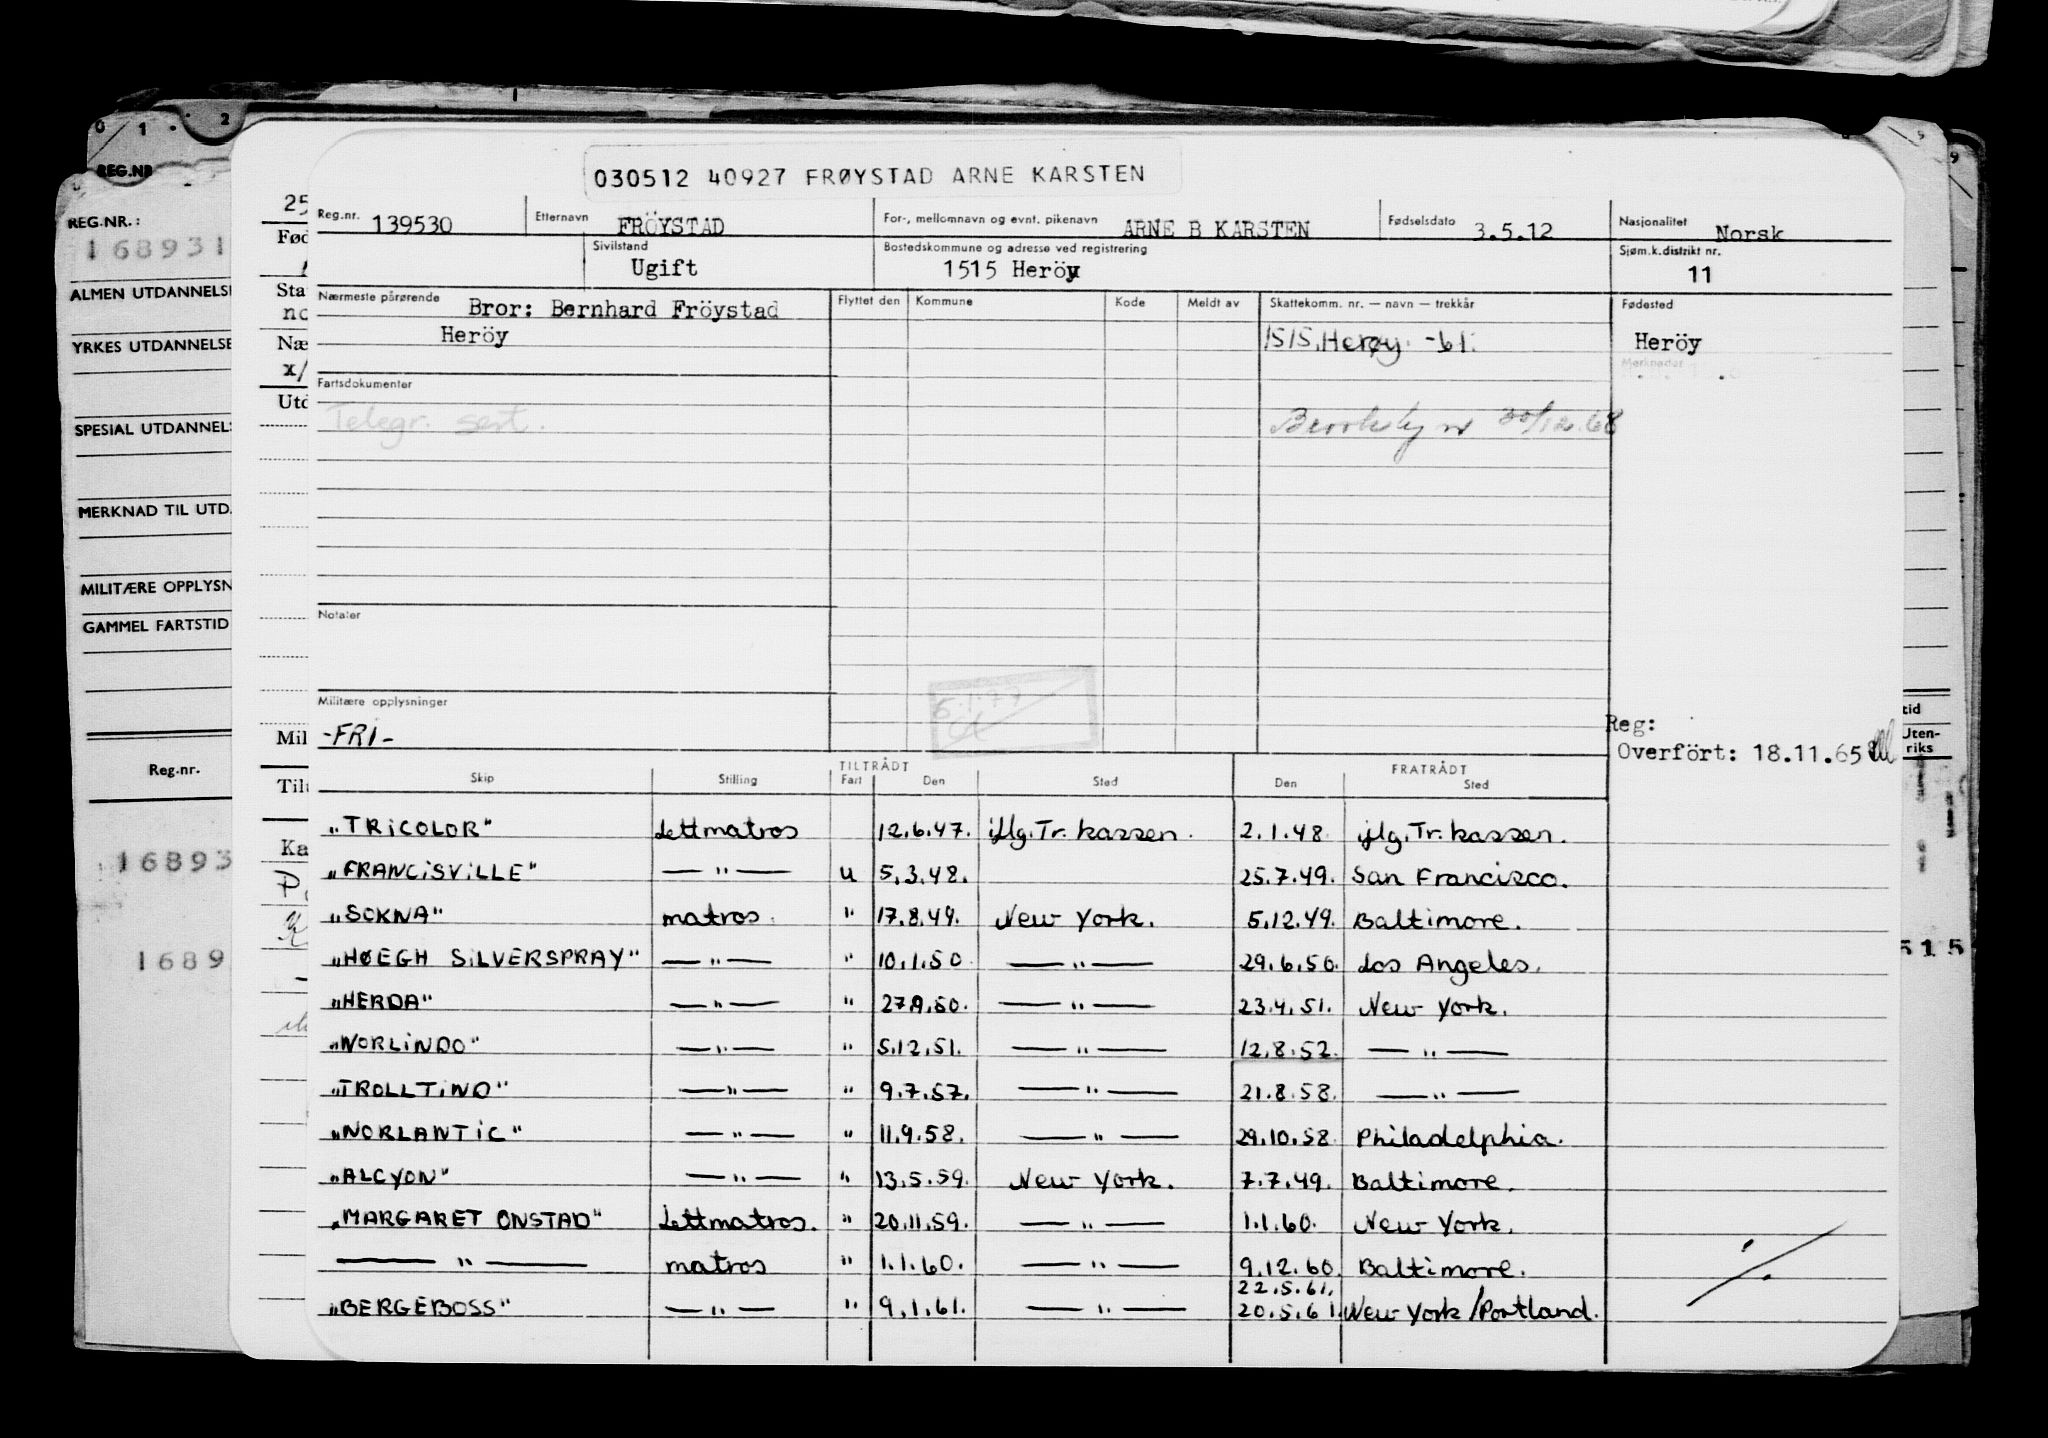 0 1 2
REG.NR
REG.NR.:
168931
ALMEN UTDANNELSE
YRKES UTDANNELSE
SPESIAL UTDANNELS
MERKNAD TIL UTD.
MILITÆRE OPPLYSN
GAMMEL FARTSTID
Reg.nr.
16893
1689
25
Fød
Sta
no
Næ
x/
Utd
Mil
Ka
030512 40927 FRØYSTAD ARNE KARSTEN
Reg.nr. 139530 Etternavn FRÖYSTAD For-, mellomnavn og evnt. pikenavn ARNE B KARSTEN Fødselsdato 3.5.12 Nasjonalitet Norsk
Sivilstand Ugift Bostedskommune og adresse ved registrering 1515 Heröy Sjøm.k.distrikt nr. 11
Nærmeste pårørende Bror: Bernhard Fröystad Flyttet den Kommune Kode Meldt av Skattekomm. nr. — navn — trekkår Fødested
Heröy 1515 Herøy. -61. Heröy
Merknader
Fartsdokumenter
Telegr. sert. 30/12.68
Notater
Militære opplysninger
5.1.77
-FRI-
Reg:
Overfört: 18.11.65
TILTRÅDT FRATRÅDT
Skip Stilling Fart Den Sted Den Sted
„TRICOLOR" Lettmatros 12.6.47. iflg. Tr. kassen. 2.1.48. iflg. Tr. kassen.
„FRANCISVILLE" — " — u 5.3.48. 25.7.49. San Francisco.
„SOKNA" matros. " 17.8.49. New York. 5.12.49. Baltimore.
„HØEGH SILVERSPRAY" — " — " 10.1.50. — " — 29.6.50. Los Angeles.
„HERDA" — " — " 27.9.50. — " — 23.4.51. New York.
„NORLINDO" — " — " 5.12.51. — " — 12.8.52. — " —
„TROLLTIND" — " — " 9.7.57. — " — 21.8.58. — " —
„NORLANTIC" — " — " 11.9.58. — " — 29.10.58 Philadelphia.
„ALCYON" — " — " 13.5.59. New York. 7.7.49. Baltimore.
„MARGARET ONSTAD" Lettmatros. " 20.11.59. — " — 1.1.60. New York.
— " — matros " 1.1.60. — " — 9.12.60. Baltimore.
22.5.61.
„BERGEBOSS" — " — " 9.1.61. — " — 20.5.61. New York/Portland.
tid
Uten-
riks
515